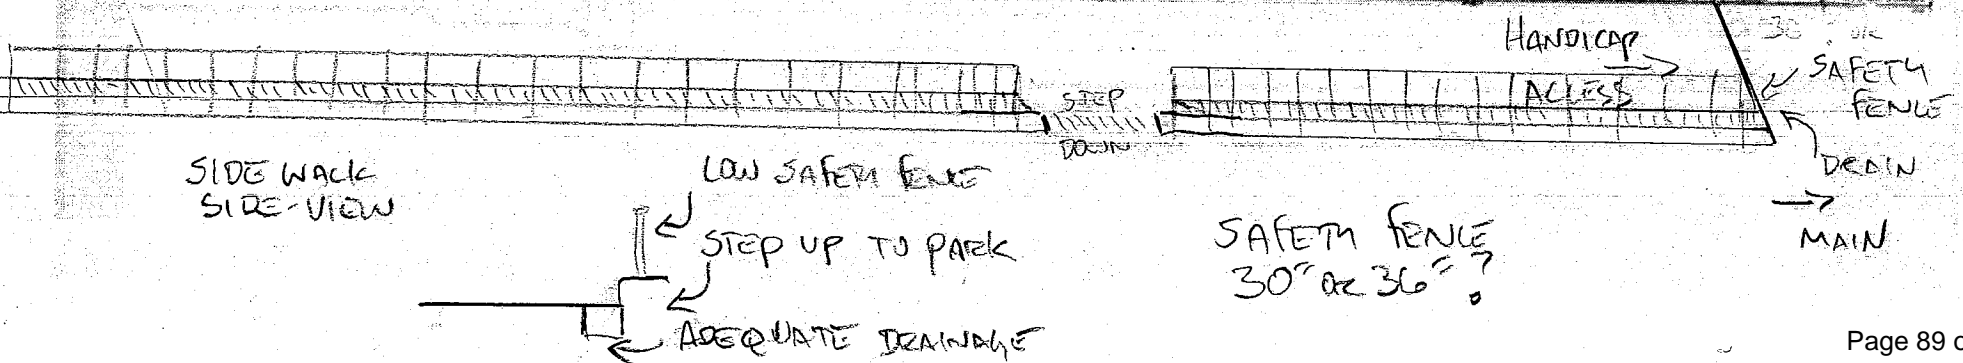 HANDICAP
ACCESS
30
SAFETY
FENCE
STEP
DOWN
DRAIN
MAIN
SIDE WALK
SIDE-VIEW
LOW SAFETY FENCE
STEP UP TO PARK
ADEQUATE DRAINAGE
SAFETY FENCE
30" OR 36" ?
Page 89 o